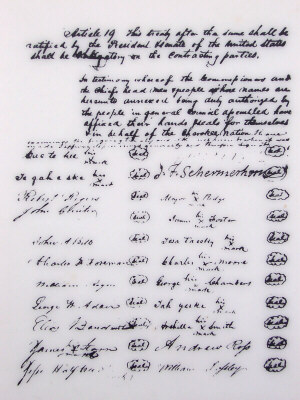 Article 19. This treaty after the same shall be
ratified by the President & Senate of the United States
shall be obligatory on the contracting parties.
In testimony whereof the Commissioners and
the Chiefs head men & people whose names are
hereunto annexed being duly authorized by
the people in general Council assembled have
affixed their hands & seals for themselves
& in behalf of the Cherokee Nation
his x mark Seal Seal
Te gah e ske his x mark Seal J. F. Schermerhorn
Robert Rogers Seal Major his x mark Ridge Seal
John Seal James his x mark Foster Seal
John Seal Tesa Taesky his x mark Seal
Charles F Foreman Seal Charles his x mark Moore Seal
William Rogers Seal George his x mark Chambers Seal
George W. Adair Seal Tah yeske his x mark Seal
Elias Boudinot Seal Archilla his x mark Smith Seal
James Starr his x mark Seal Andrew Ross Seal
Jesse Seal William Lassley Seal